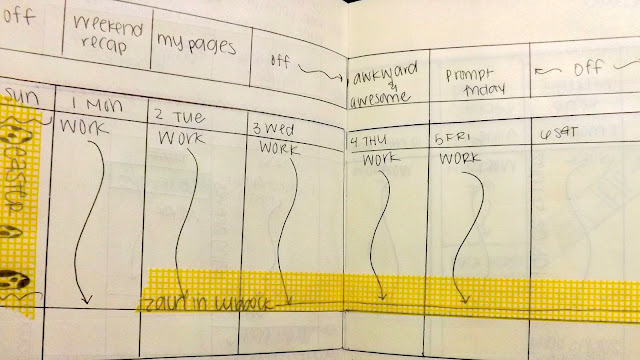 off
weekend
recap
my pages
off
awkward
&
awesome
prompt
friday
off
sun
1 Mon
2 TUE
3 Wed
4 THU
5 FRI
6 SAT
WORK
WORK
WORK
WORK
WORK
EASTER
in Lubbock